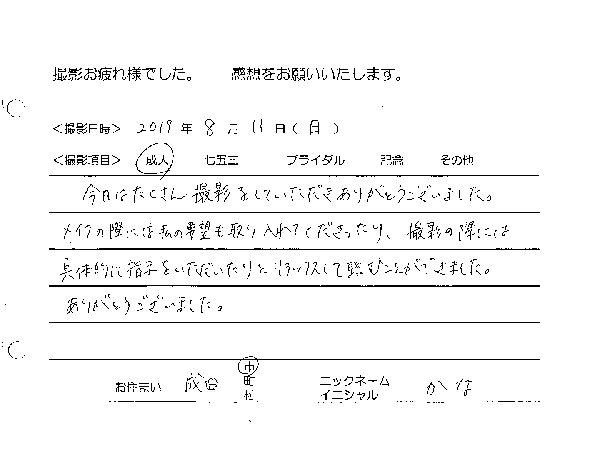 撮影お疲れ様でした。 感想をお願いいたします。
<撮影日時> 2019年 8月 11日(日)
<撮影項目> 成人 七五三 ブライダル 記念 その他
今日はたくさん撮影をしていただきありがとうございました。
メイクの際には私の希望も取り入れてくださったり、撮影の際には
具体的に指示をいただいたりとリラックスして臨むことができました。
ありがとうございました。
お住まい 成田 市 町 村 ニックネーム イニシャル かな